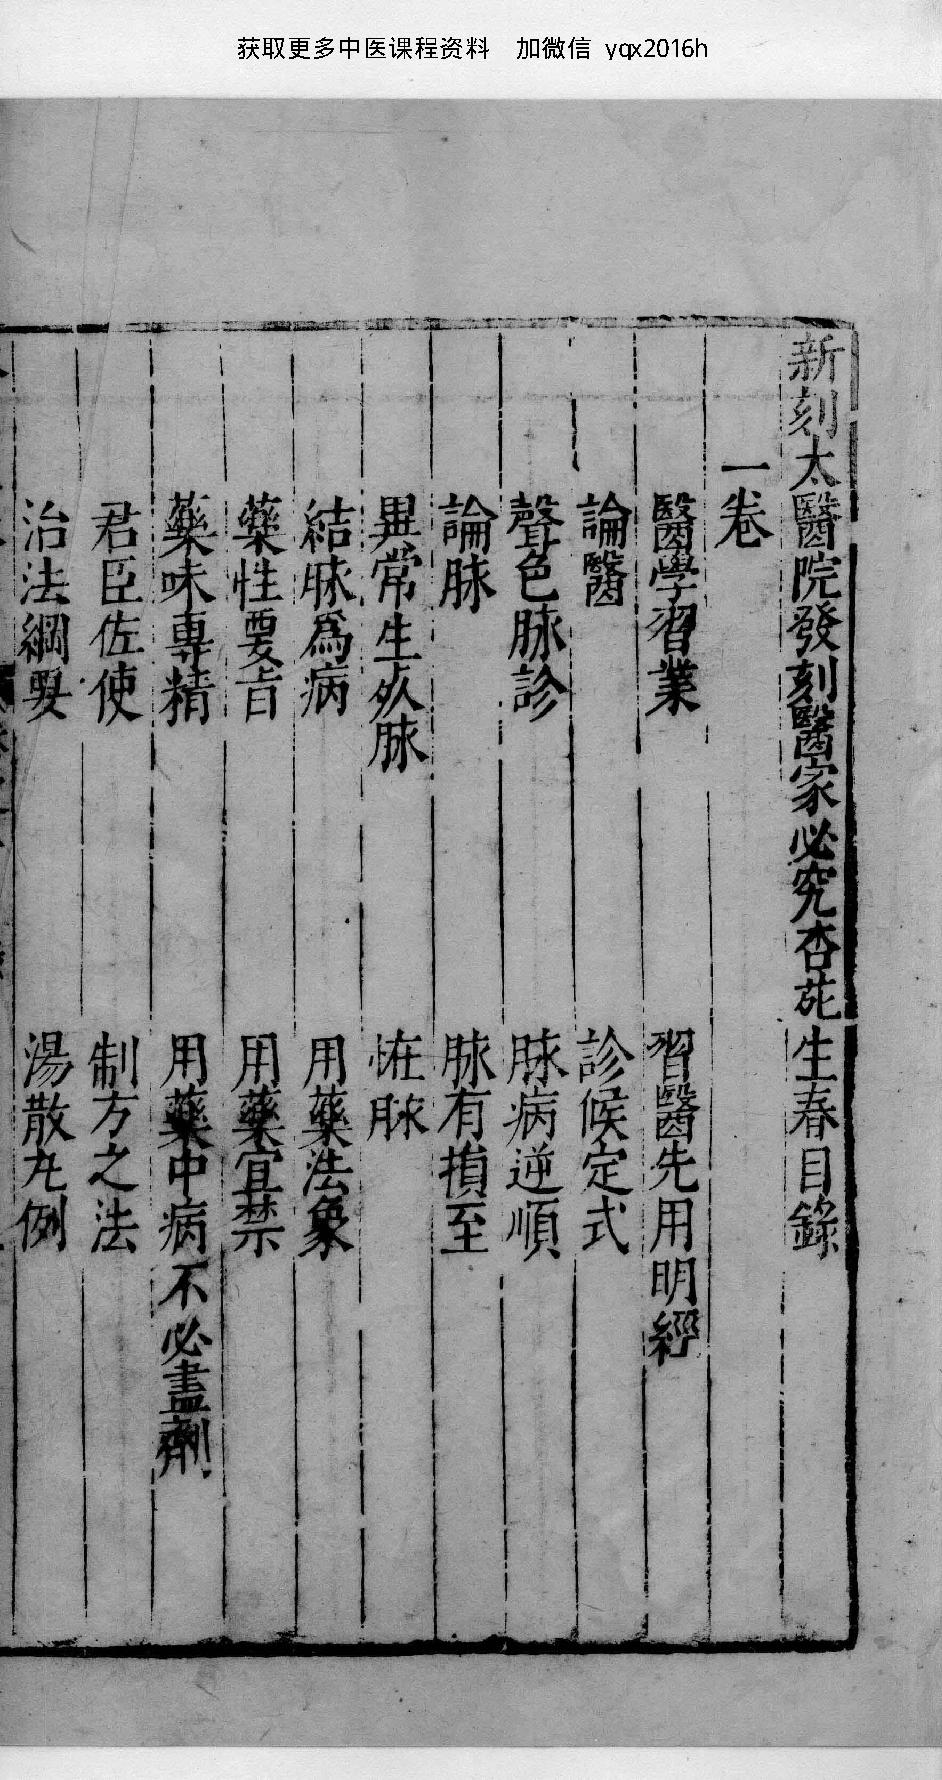 获取更多中医课程资料 加微信 yqx2016h
新刻太醫院發刻醫家必究杏苑生春目錄
一卷
醫學習業 習醫先用明經
論醫 診候定式
聲色脉診 脉病逆順
論脉 脉有損至
異常生死脉 恠脉
結脉爲病 用藥法象
藥性要旨 用藥宜禁
藥味專精 用藥中病不必盡劑
君臣佐使 制方之法
治法綱要 湯散丸例